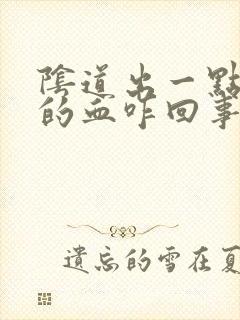 陰道出一點
的血咋回事
遺忘的雪在夏